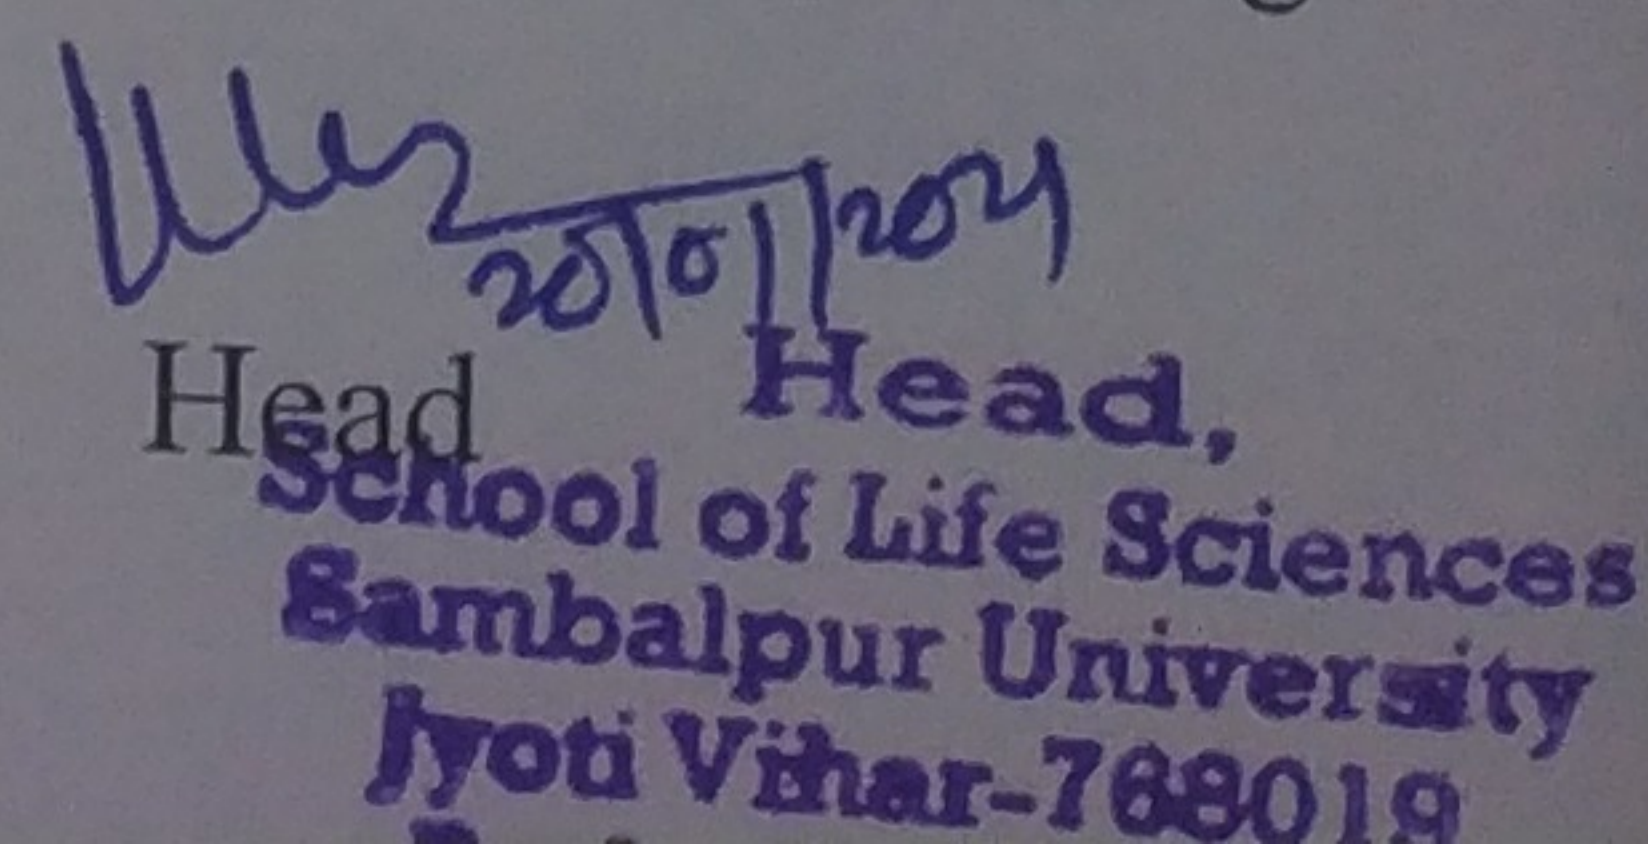 20/01/2021
Head
Head,
School of Life Sciences
Sambalpur University
Jyoti Vihar-768019